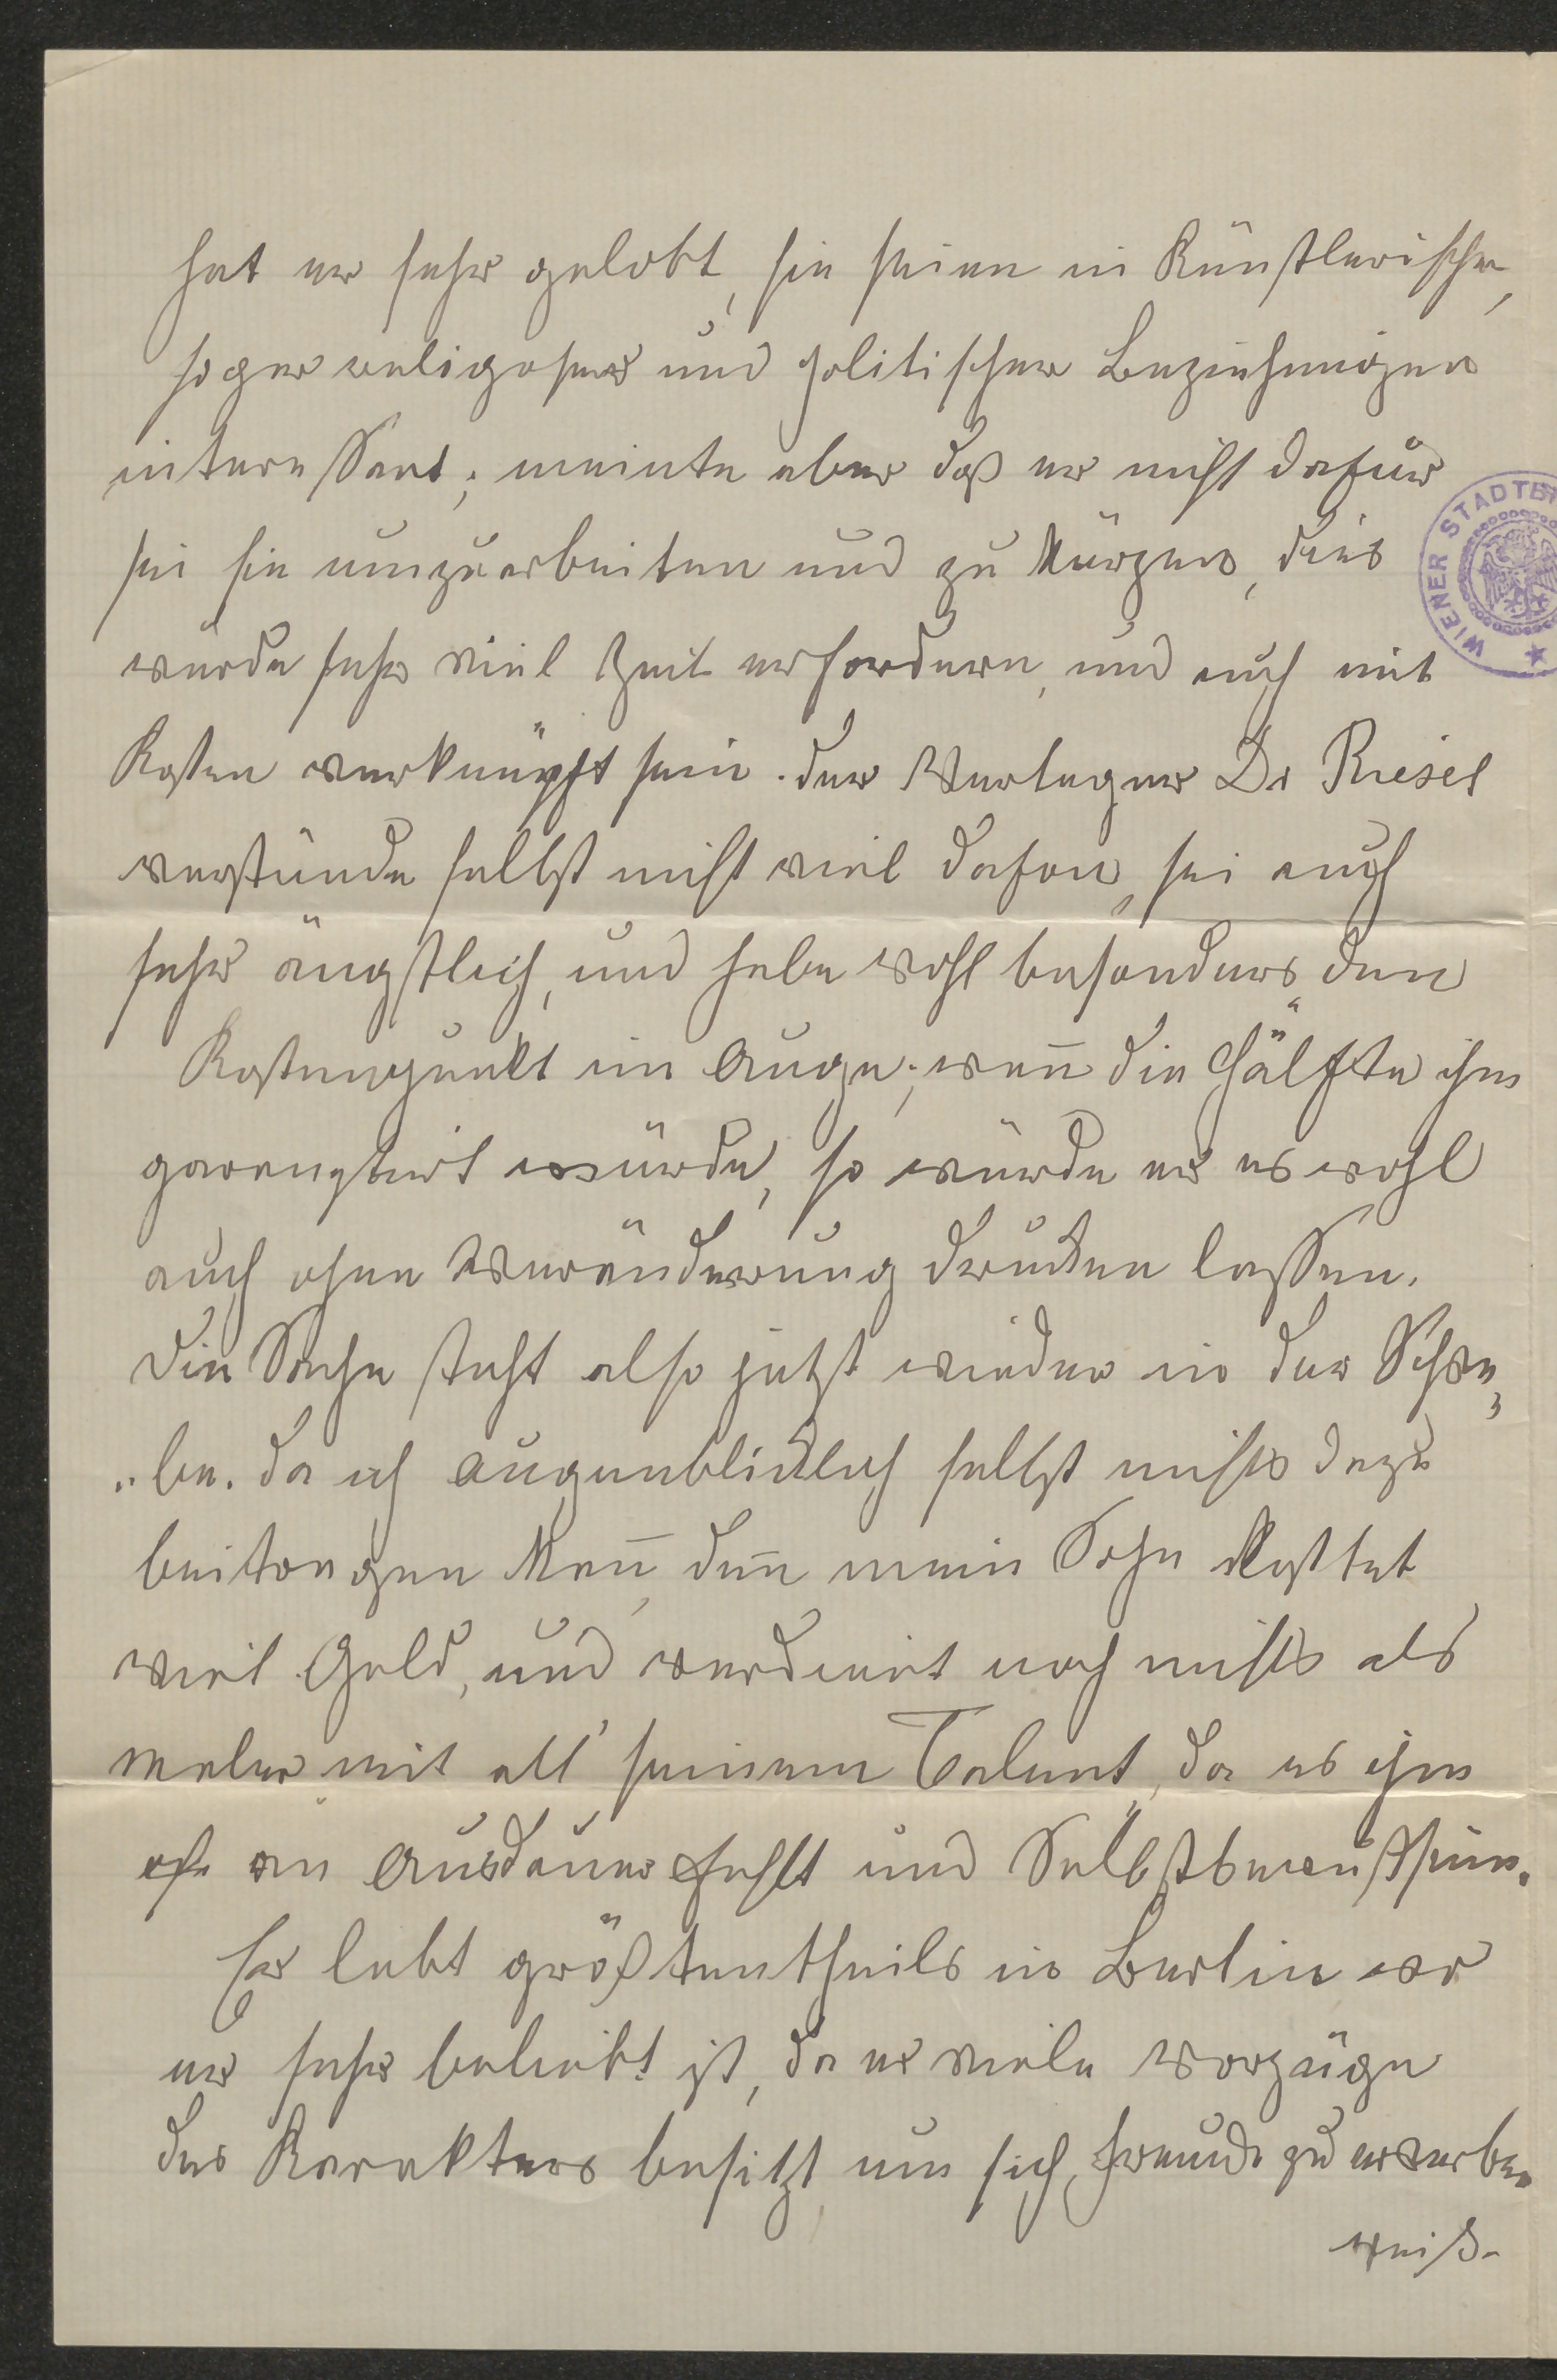 hat er sehr gelobt, sie seien in Künstlerischer,
sogar religoser und politischer Beziehungen
interessant; meinte aber daß er nicht dafür
sei sie umzuarbeiten und zu kürzen, dies
würde sehr viel Zeit erfordern, und auch mit
Kosten verknüpft sein. der Verleger Dr Riesel
verstünde selbst nicht viel dafon, sei auch
sehr ängstlich, und habe wohl besonders den
Kostenpunkt im Auge; wen̄ die Hälfte ihm
garangtirt würde, so würde er es wohl
auch ohne Veränderung drucken lassen.
Die Sache steht also jetzt wieder in der Schwe„
„be. da ich augenblicklich selbst nichts dazu
beitragen kan̄, den̄ mein Sohn kostet
viel Geld, und verdient noch nichts als
Maler mit all' seinem Talent, da es ihm
oft an Ausdauer fehlt und Selbstbewußtsein.
Er lebt größtentheils in Berlin wo
er sehr beliebt ist, da er viele Vorzüge
des Karakters besitzt, um sich Freunde zu erwerben
weiß.
WIENER STADTBI